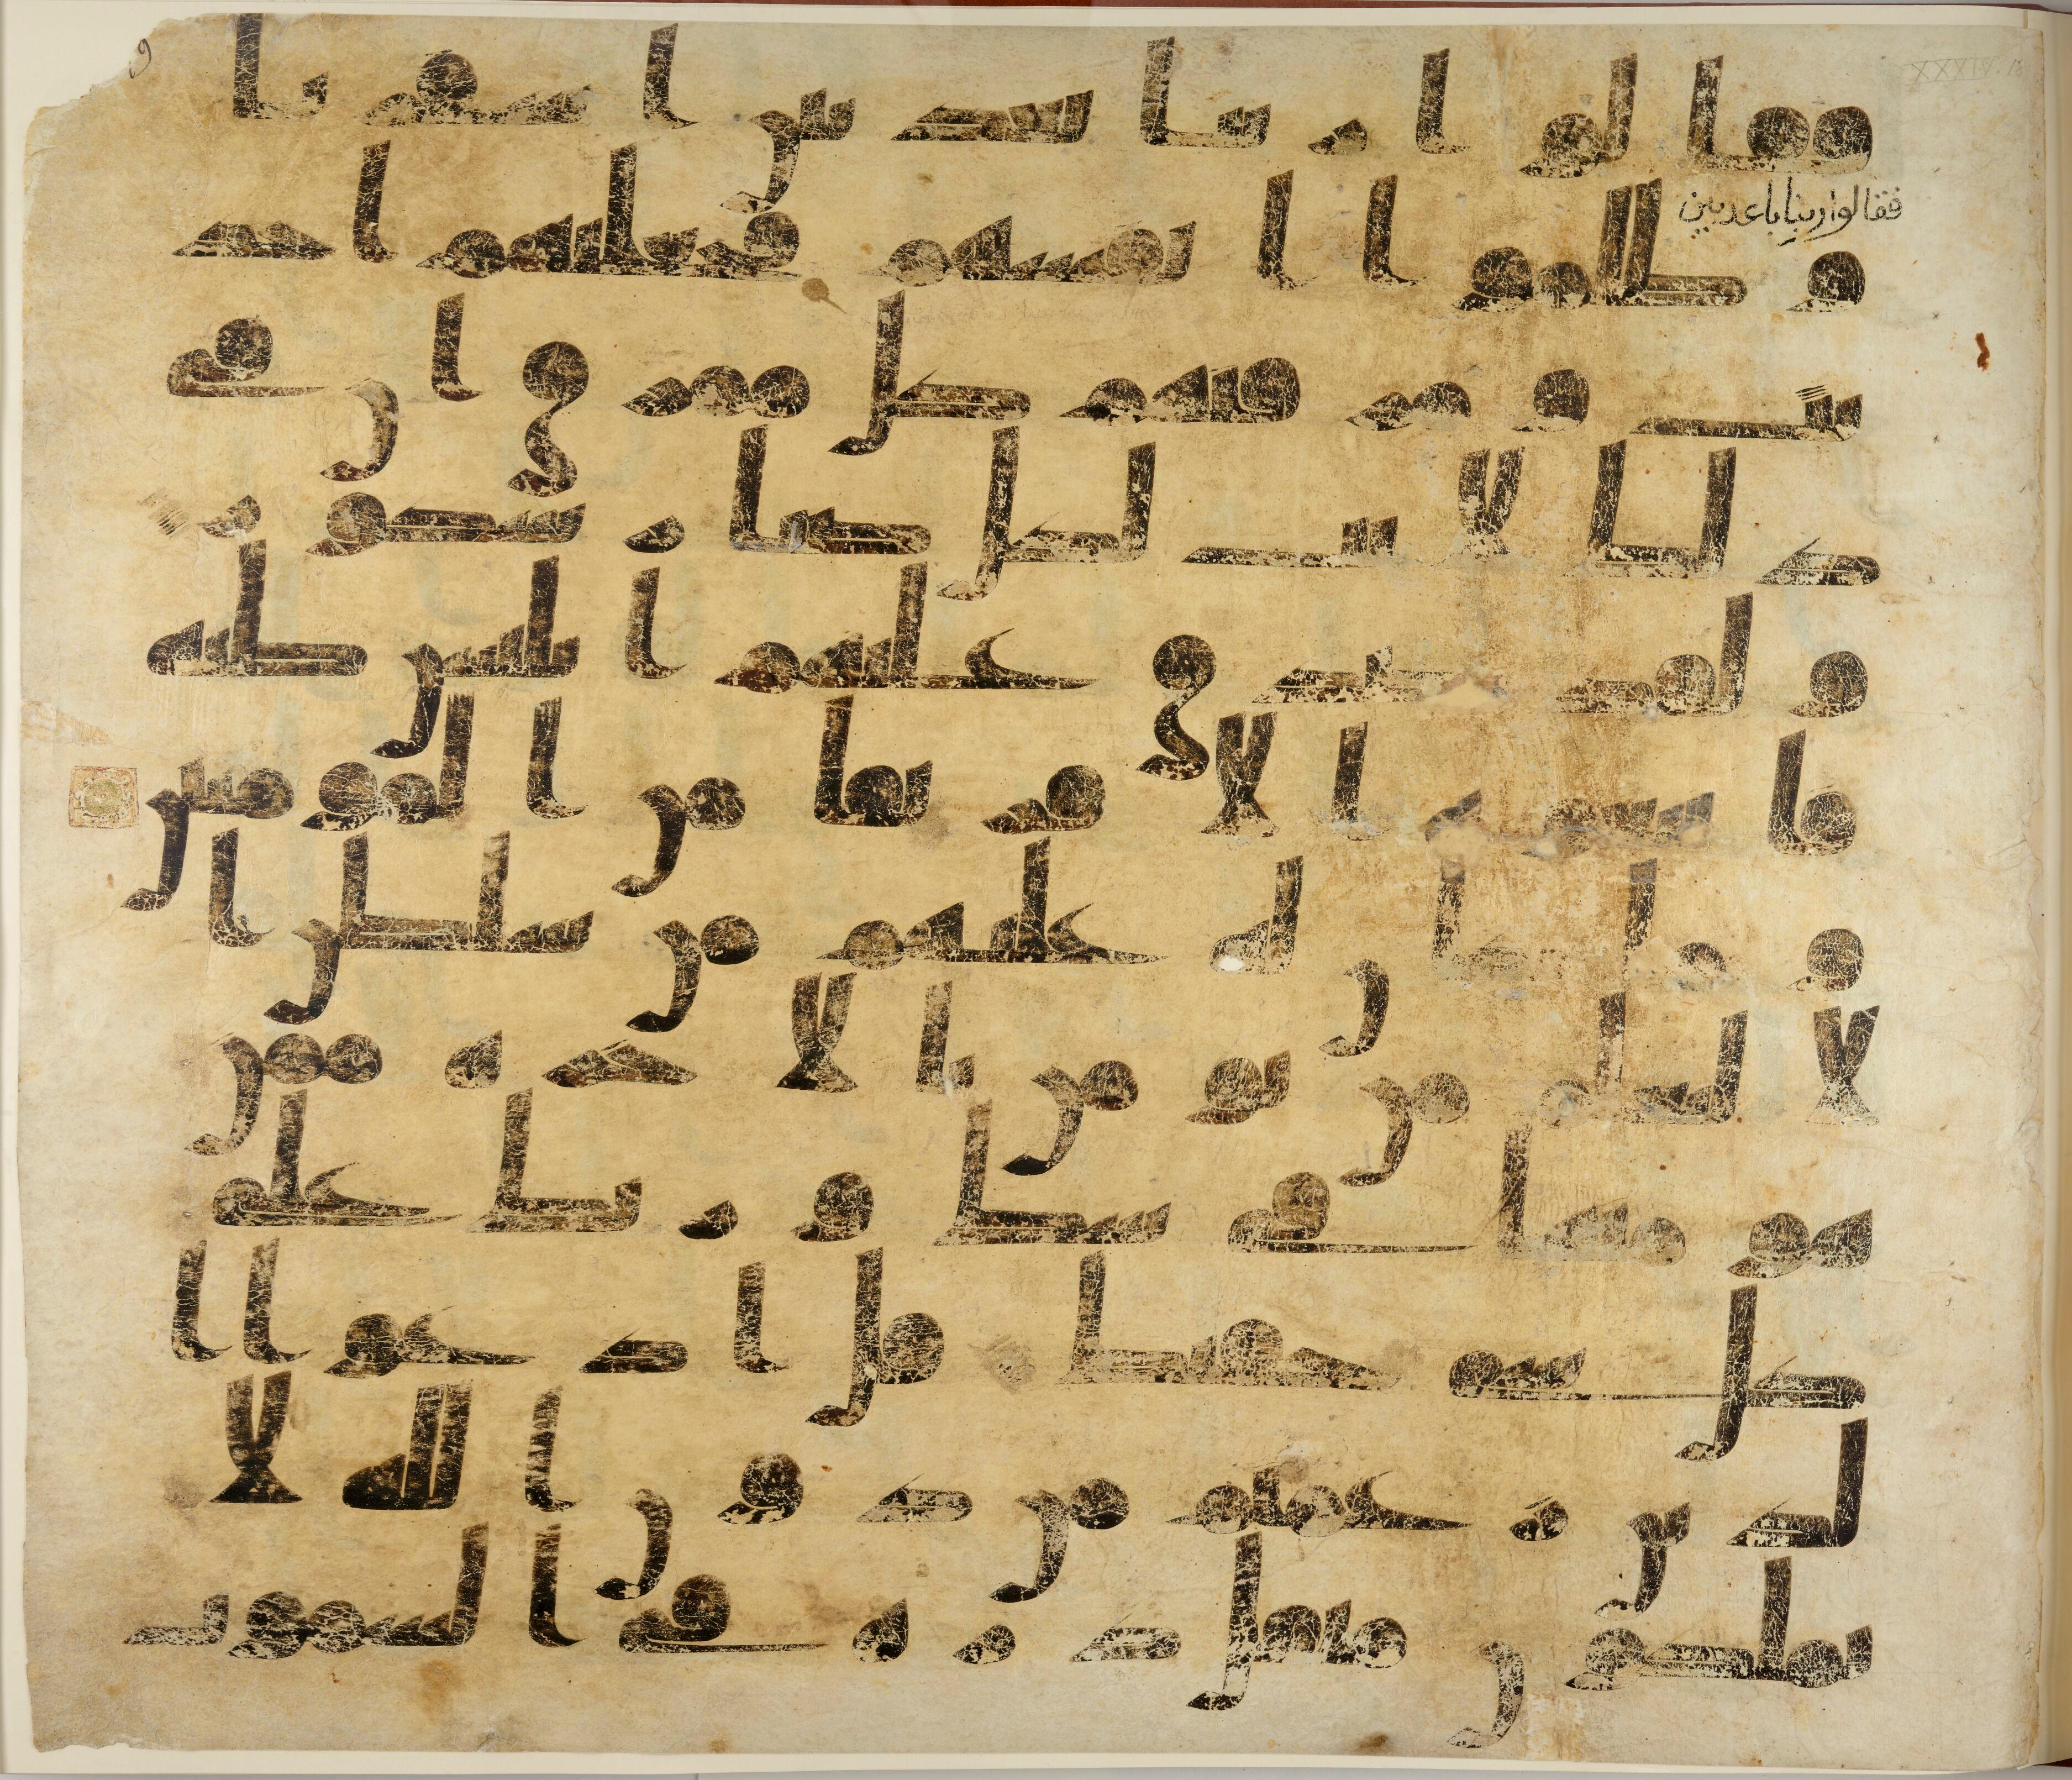 فقالوا ربنا بعد بين اسفرنا
فقالوا ربنا باعد بين
و ظلموا انفسهم فجعلنهم احد
يث و مزقنهم كل ممزق ان في
ذلك لايت لكل صبار شكور
و لقد صدق عليهم ابليس ظنه
فاتبعوه الا فريقا من المومنين
و ما كان له عليهم من سلطن ا
لا لنعلم من يومن بالاخرة ممن
هو منها في شك و ربك على
كل شي حفيظ قل ادعوا ا
لذين زعمتم من دون الله لا
يملكون مثقل ذرة في السموت